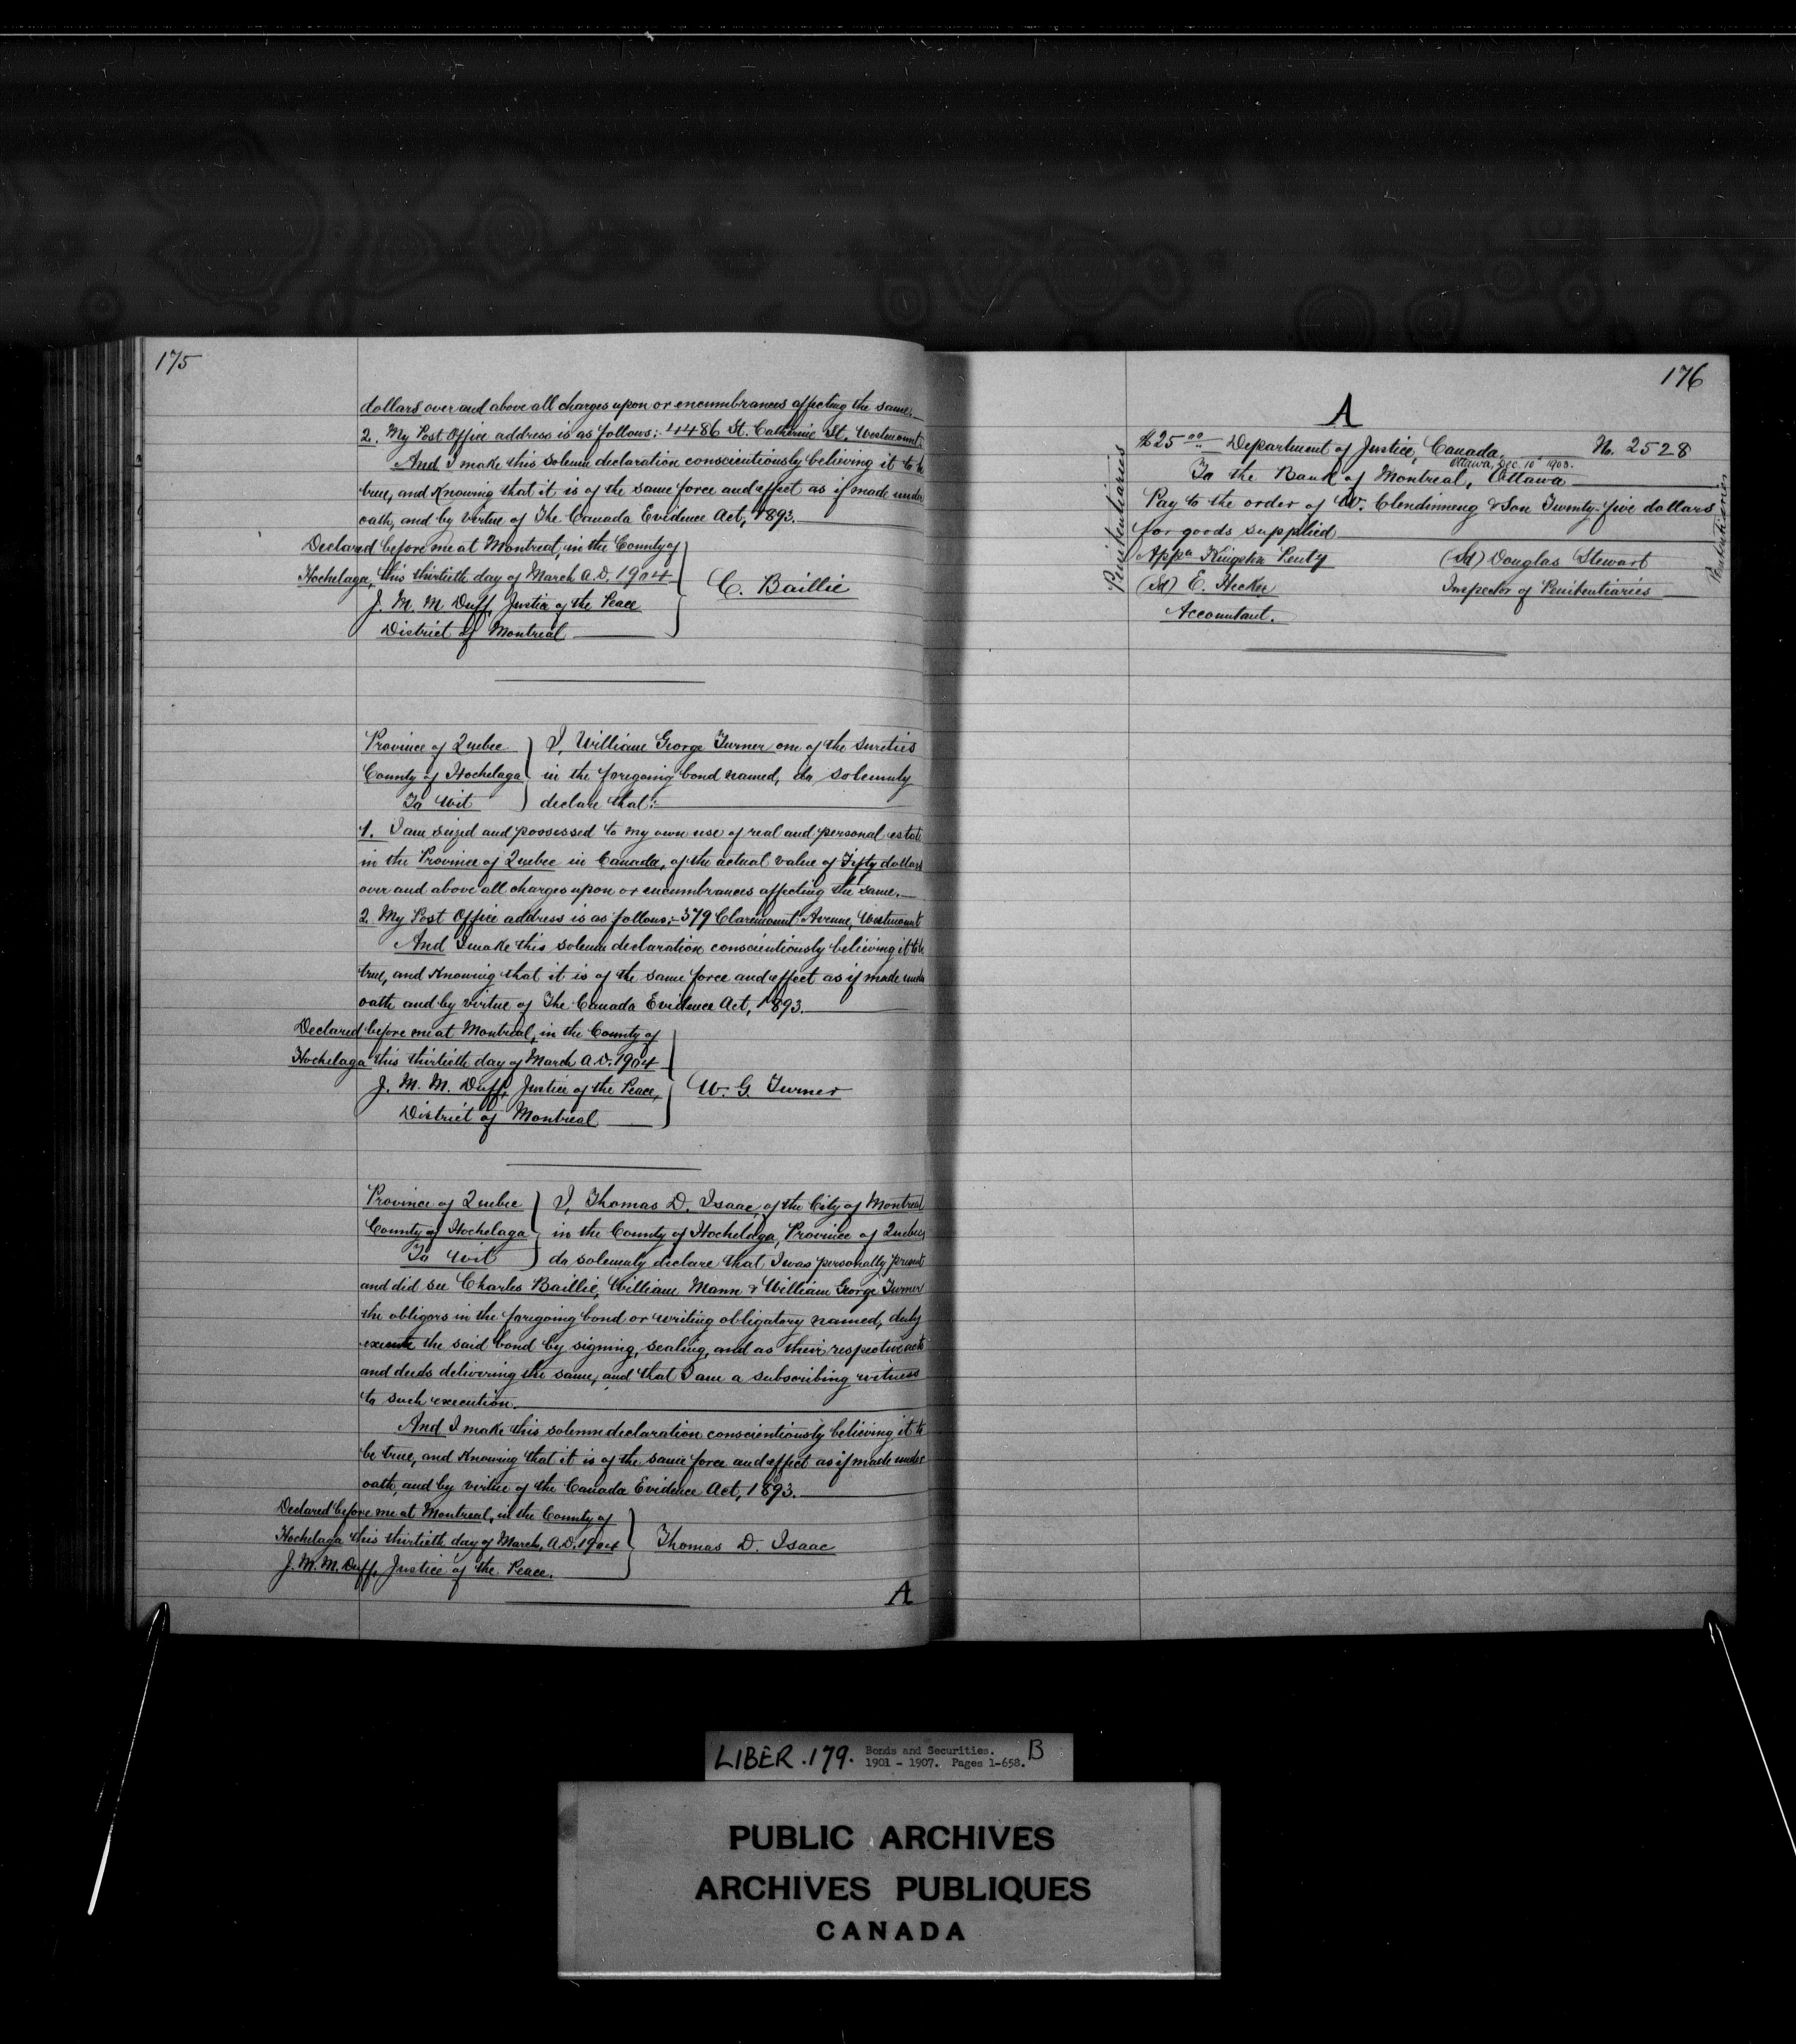 175
dollars over and above all charges upon or encumbrances affecting the same.
2. My Post Office address is as follows:- 4486 St. Catherine St. Westmount.
And I make this solemn declaration conscientiously believing it to be
true, and Knowing that it is of the same force and effect as if made under
oath, and by virtue of The Canada Evidence Act, 1893.
Declared before me at Montreal, in the County of
Hochelaga, this thirtieth day of March A.D. 1904
J. M. M. Duff, Justice of the Peace
District of Montreal
C. Baillie
Province of Quebec
County of Hochelaga
To Wit
I, William George Turner one of the sureties
in the foregoing bond named, do solemnly
declare that:-
1. I am seized and possessed to my own use of real and personal estate
in the Province of Quebec in Canada, of the actual value of Fifty dollars
over and above all charges upon or encumbrances affecting the same.
2. My Post Office address is as follows:- 379 Claremount Avenue, Westmount
And I make this solemn declaration conscientiously believing it to be
true, and Knowing that it is of the same force and effect as if made under
oath and by virtue of The Canada Evidence Act, 1893.
Declared before me at Montreal, in the County of
Hochelaga this thirtieth day of March A.D. 1904
J. M. M. Duff, Justice of the Peace,
District of Montreal
W. G. Turner
Province of Quebec
County of Hochelaga
To Wit
I, Thomas D. Isaac, of the City of Montreal
in the County of Hochelaga, Province of Quebec
do solemnly declare that I was personally present
and did see Charles Baillie, William Mann & William George Turner
the obligors in the foregoing bond or writing obligatory named, duly
execute the said bond by signing, sealing, and as their respective acts
and deeds delivering the same, and that I am a subscribing witness
to such execution.
And I make this solemn declaration conscientiously believing it to
be true, and Knowing that it is of the same force and effect as if made under
oath, and by virtue of the Canada Evidence Act, 1893.
Declared before me at Montreal, in the County of
Hochelaga this thirtieth day of March, A.D. 1904
J. M. M. Duff, Justice of the Peace.
Thomas D. Isaac
A
176
A
$25 00 Department of Justice, Canada, No. 2528
Ottawa, Dec. 10th 1903.
To the Bank of Montreal, Ottawa
Pay to the order of W. Clendinneng & Son Twenty-five dollars
for goods supplied
Appn Kingston Penty
(Sd) Douglas Stewart
(Sd) E. Hecker
Inspector of Penitentiaries
Accountant.
Penitentiaries
Penitentiaries
LIBER. 179. Bonds and Securities. B
1901 - 1907. Pages 1-658.
PUBLIC ARCHIVES
ARCHIVES PUBLIQUES
CANADA